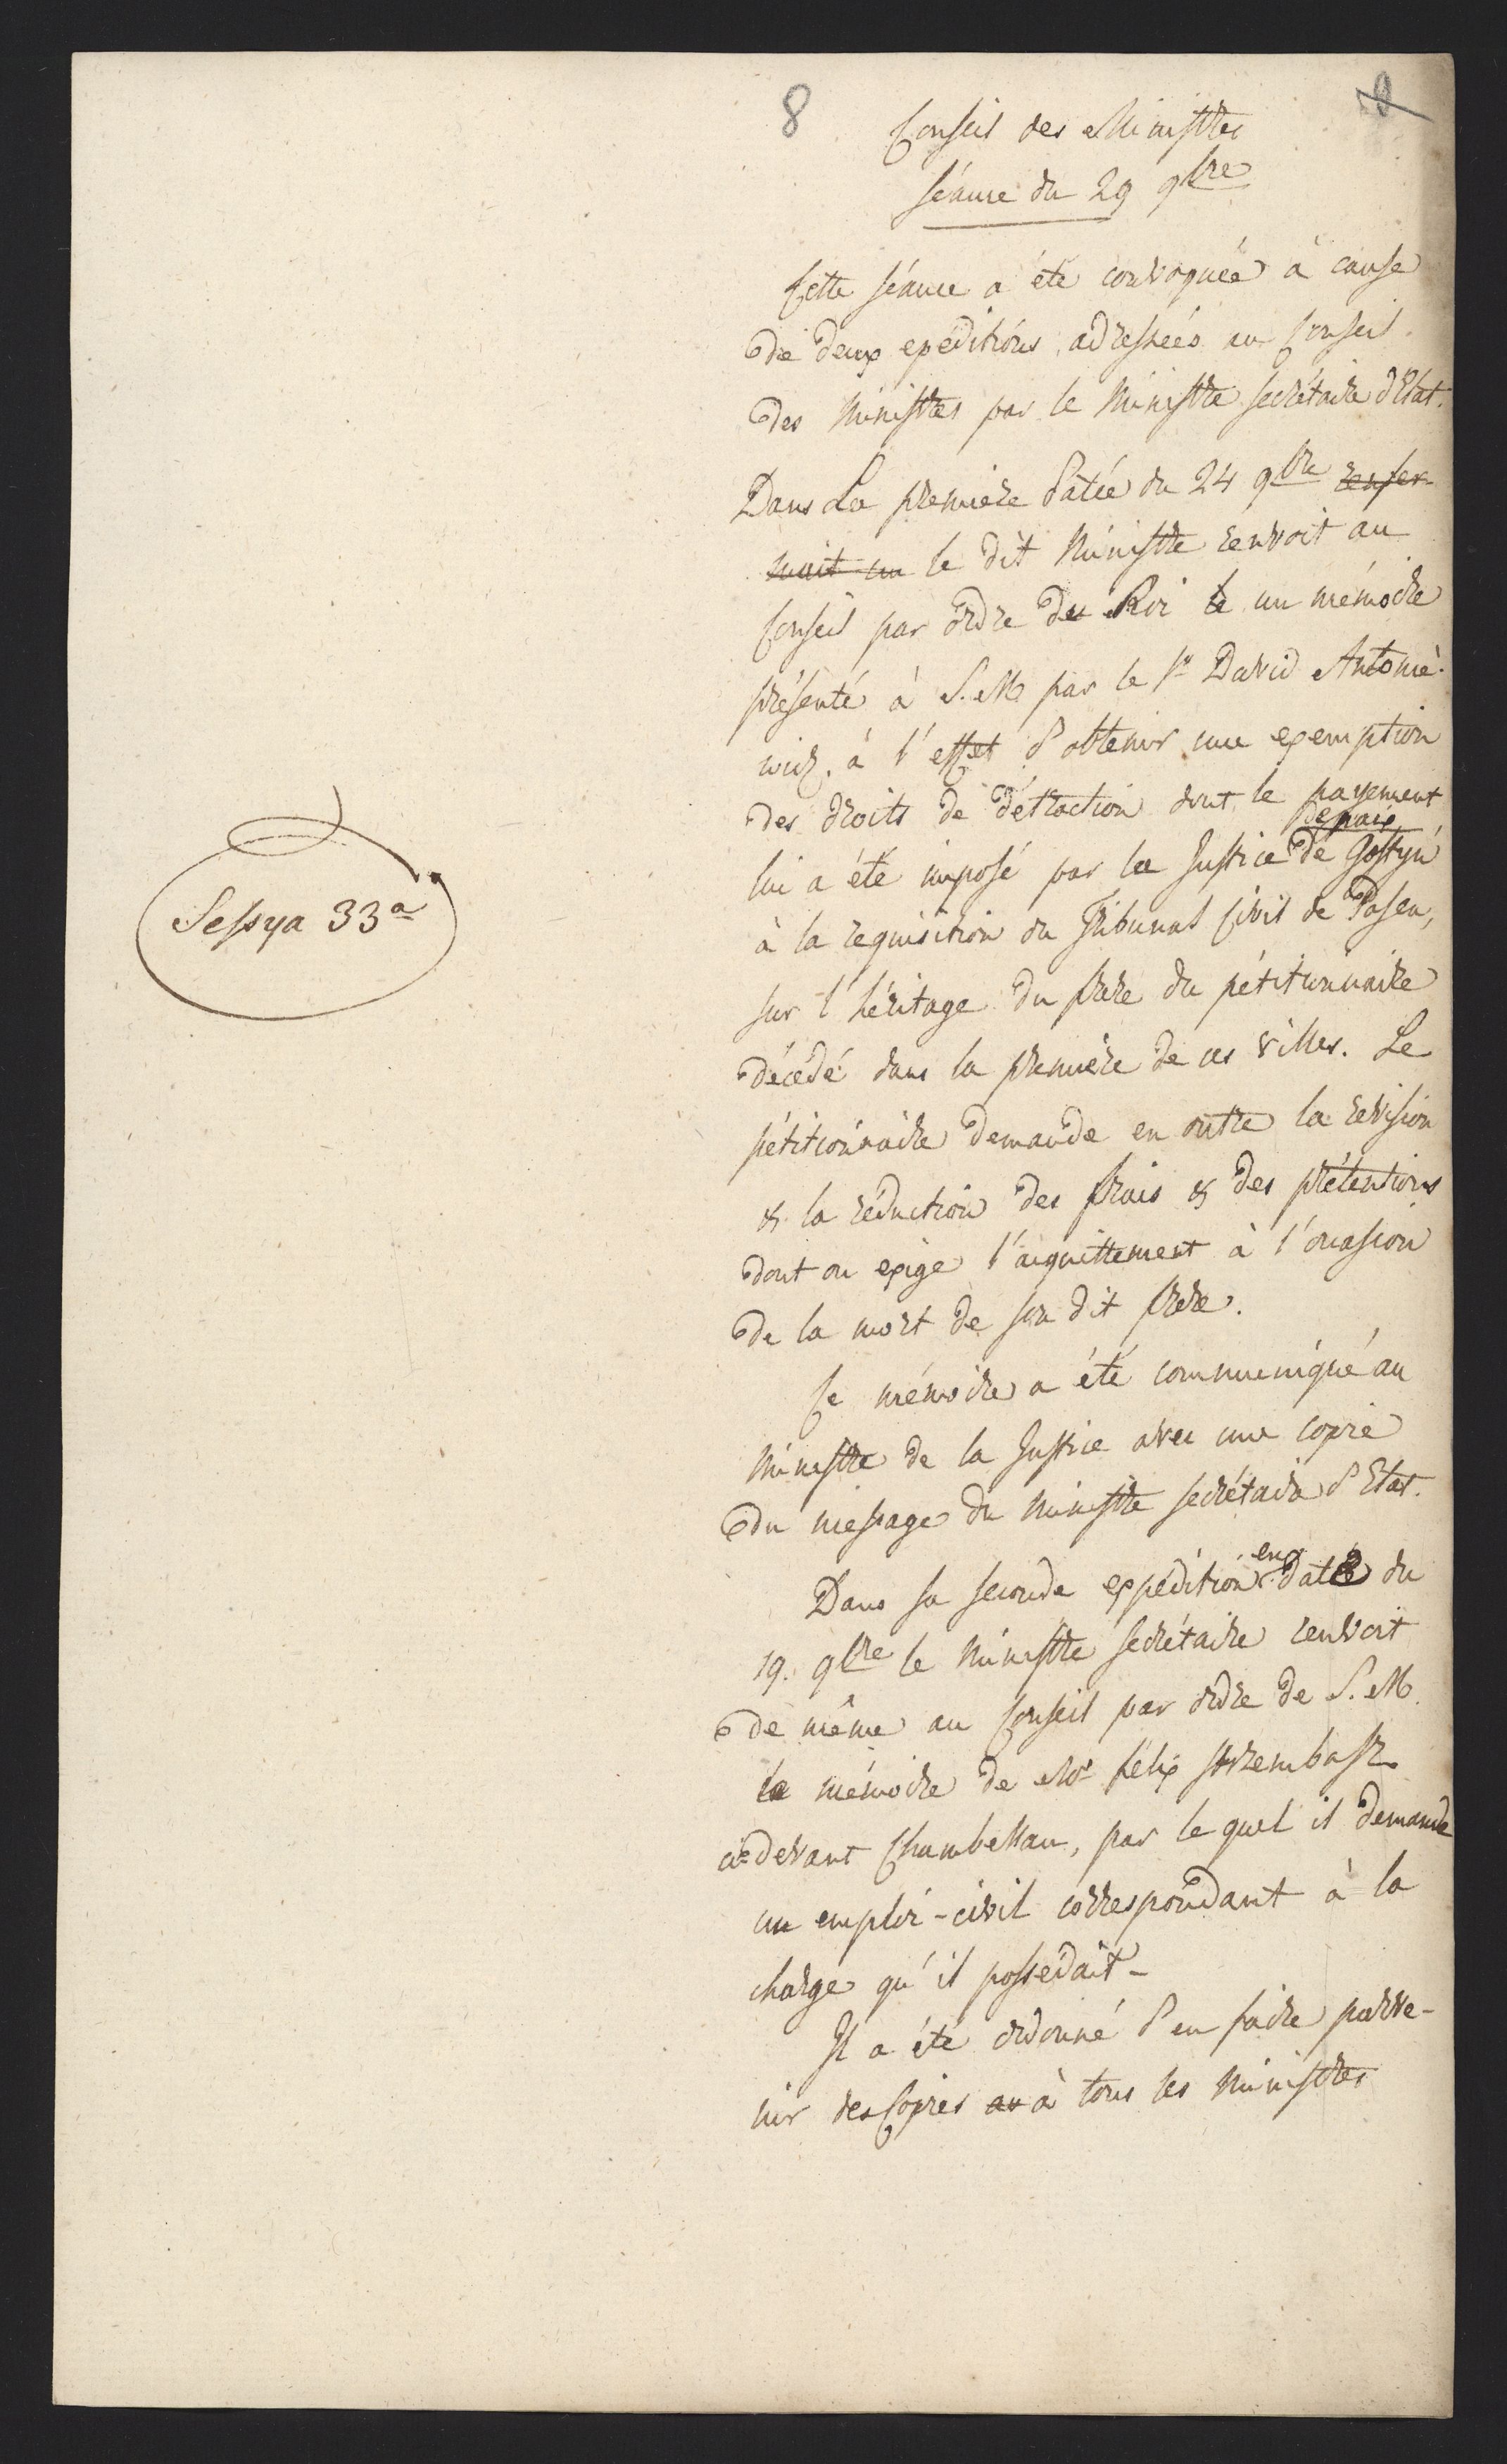 8
9
Conseil des Ministres
séance du 29 9bre
Cette séance a été convoquée à cause
de deux epéditions adressées au Conseil
des Ministres par le Ministre secrétaire d'Etat.
Dans La première datée du 24 9bre renfer-
mait un le dit Ministre renvoit au
Conseil par ordre du Roi le un mémoire
présenté à S. M. par le Sr David Antonie-
wicz. à l'effet d'obtenir une exemption
des droits de détraction dont le payement
de paix
lui a été imposé par la Justice de Gostyń
à la requisition du Tribunal Civil de Posen,
sur l'héritage du frère du pétitionnaire
décédé dans la première de ces villes. Le
pétitionnaire demande en outre la revision
& la réduction des frais & des prétentions
dont on exige l'aquittement à l'ocasion
de la mort de son dit frère.
Ce mémoire a été communiqué au
Ministre de la Justice avec une copie
du message du Ministre secrétaire d'Etat.
en
Dans sa seconde expédition date du
19. 9bre le Ministre secrétaire renvoit
de même au Conseil par ordre de S. M.
le mémoire de Mr felix Strzembosz
ci-devant Chambellan, par le quel il demande
un emploi-civil correspondant à la
charge qu'il possedait-
Il a été ordonné d'en faire parve-
nir des Copies au à tous les Ministres
Sessya 33a